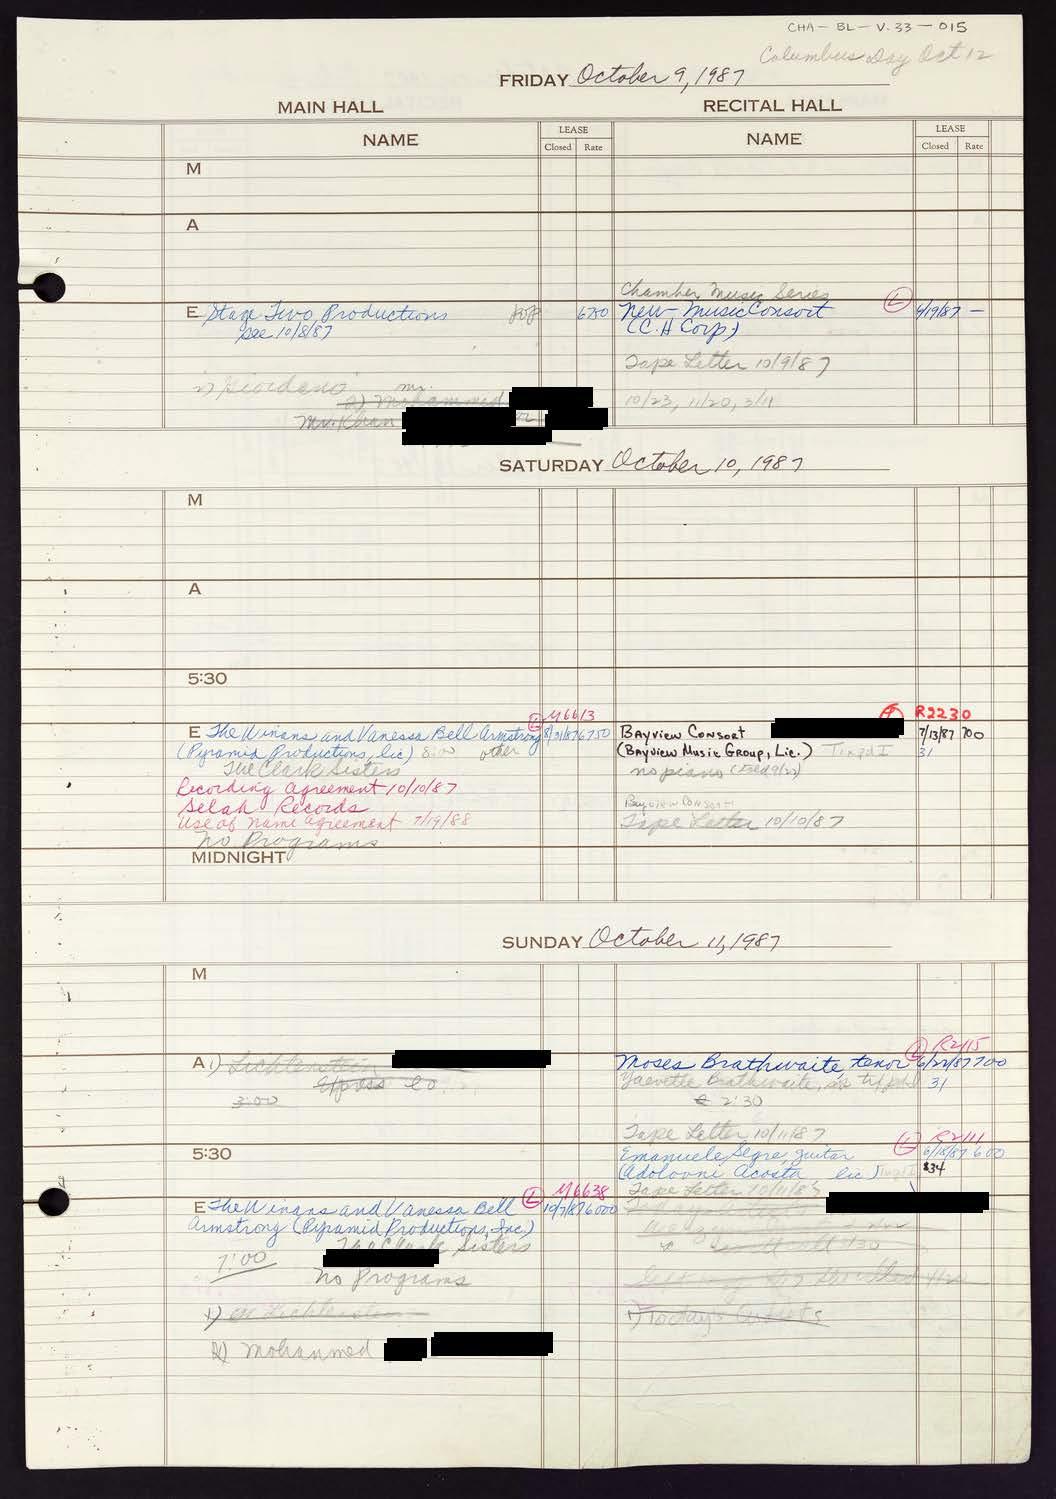 CHA-BL-V.33-015
Columbus Day Oct 12
FRIDAY October 9, 1987
MAIN HALL
RECITAL HALL
NAME
LEASE
Closed Rate
NAME
LEASE
Closed Rate
M
A
E Stage Two Productions pop 6750
see 10/8/87
Giordano
Mr.
2) Mohammed
Mr. Khan
Chamber Music Series
New-Music Consort L 9/19/87 —
(C.H Corp)
Tape Letter 10/9/87
10/23, 11/20, 3/11
SATURDAY October 10, 1987
M
A
5:30
L M6613
E The Winans and Vanessa Bell Armstrong 8/31/87 6750
(Pyramid Productions, lic) 8:00 other
The Clark Sisters
Recording Agreement 10/10/87
Selah Records
Use of Name Agreement 7/19/88
No Programs
MIDNIGHT
R2230
Bayview Consort 7/13/87 700
(Bayview Music Group, Lic.) 31
no piano
Bayview Consort
Tape Letter 10/10/87
SUNDAY October 11, 1987
M
A 1) Lichtenstein
Express Co.
3:00
L R2115
Moses Brathwaite, tenor 6/22/87 700
Brathwaite, 31
2:30
Tape Letter 10/11/87
5:30
L R2111
Emanuele Segre, guitar 6/18/87 600
(Adolovni Acosta lic) $34
Tape Letter 10/11/87
L M6638
E The Winans and Vanessa Bell 10/7/87 6000
Armstrong (Pyramid Productions, Inc.)
The Clark Sisters
7:00
No Programs
1) Lichtenstein
2) Mohammed
1) Today's Artists